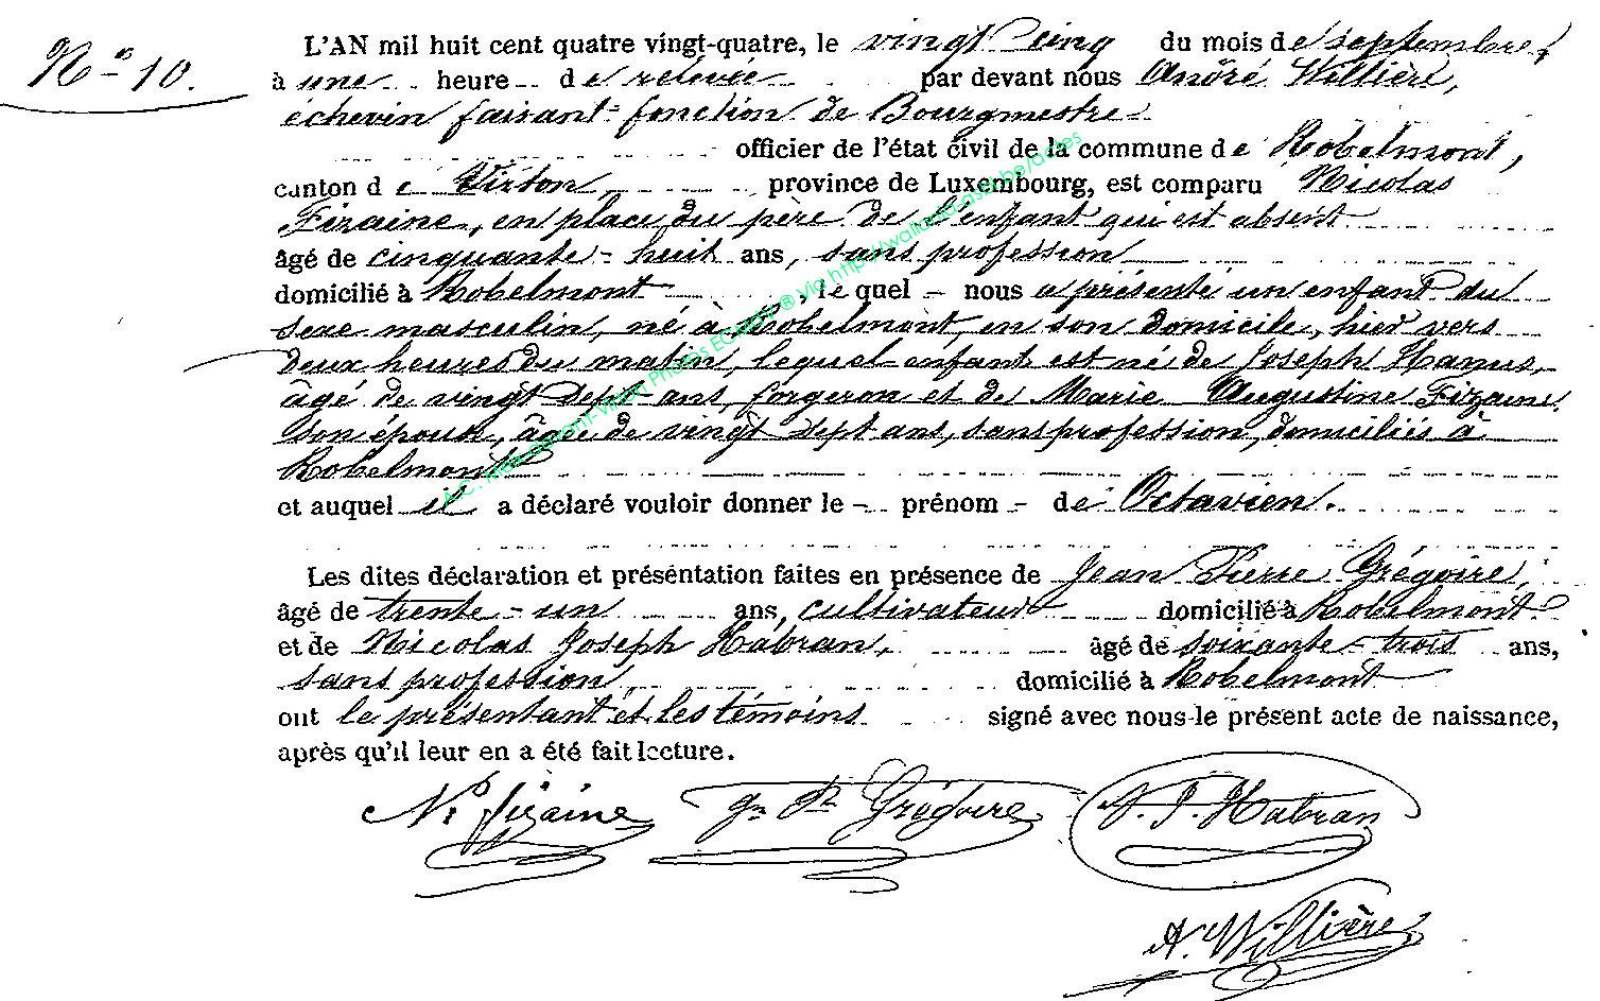 N° 10.
L'AN mil huit cent quatre vingt-quatre, le vingt cinq du mois de septembre,
à une heure de relevée par devant nous André Willière,
échevin faisant fonction de Bourgmestre
officier de l'état civil de la commune de Robelmont,
canton de Virton, province de Luxembourg, est comparu Nicolas
Fizaine, en place du père de l'enfant qui est absent
âgé de cinquante-huit ans, sans profession
domicilié à Robelmont, le quel nous a présenté un enfant du
sexe masculin, né à Robelmont, en son domicile, hier vers
deux heures du matin, lequel enfant est né de Joseph Hanus,
âgé de vingt sept ans, forgeron et de Marie Augustine Fizaine,
son épouse, âgée de vingt sept ans, sans profession, domiciliés à
Robelmont
et auquel il a déclaré vouloir donner le prénom de Octavien.
Les dites déclaration et présentation faites en présence de Jean Pierre Grégoire,
âgé de trente-un ans, cultivateur domicilié à Robelmont
et de Nicolas Joseph Habran, âgé de soixante-trois ans,
sans profession, domicilié à Robelmont
ont le présentant et les témoins signé avec nous le présent acte de naissance,
après qu'il leur en a été fait lecture.
N. Fizaine Jn Pre Grégoire N. J. Habran
A. Willière